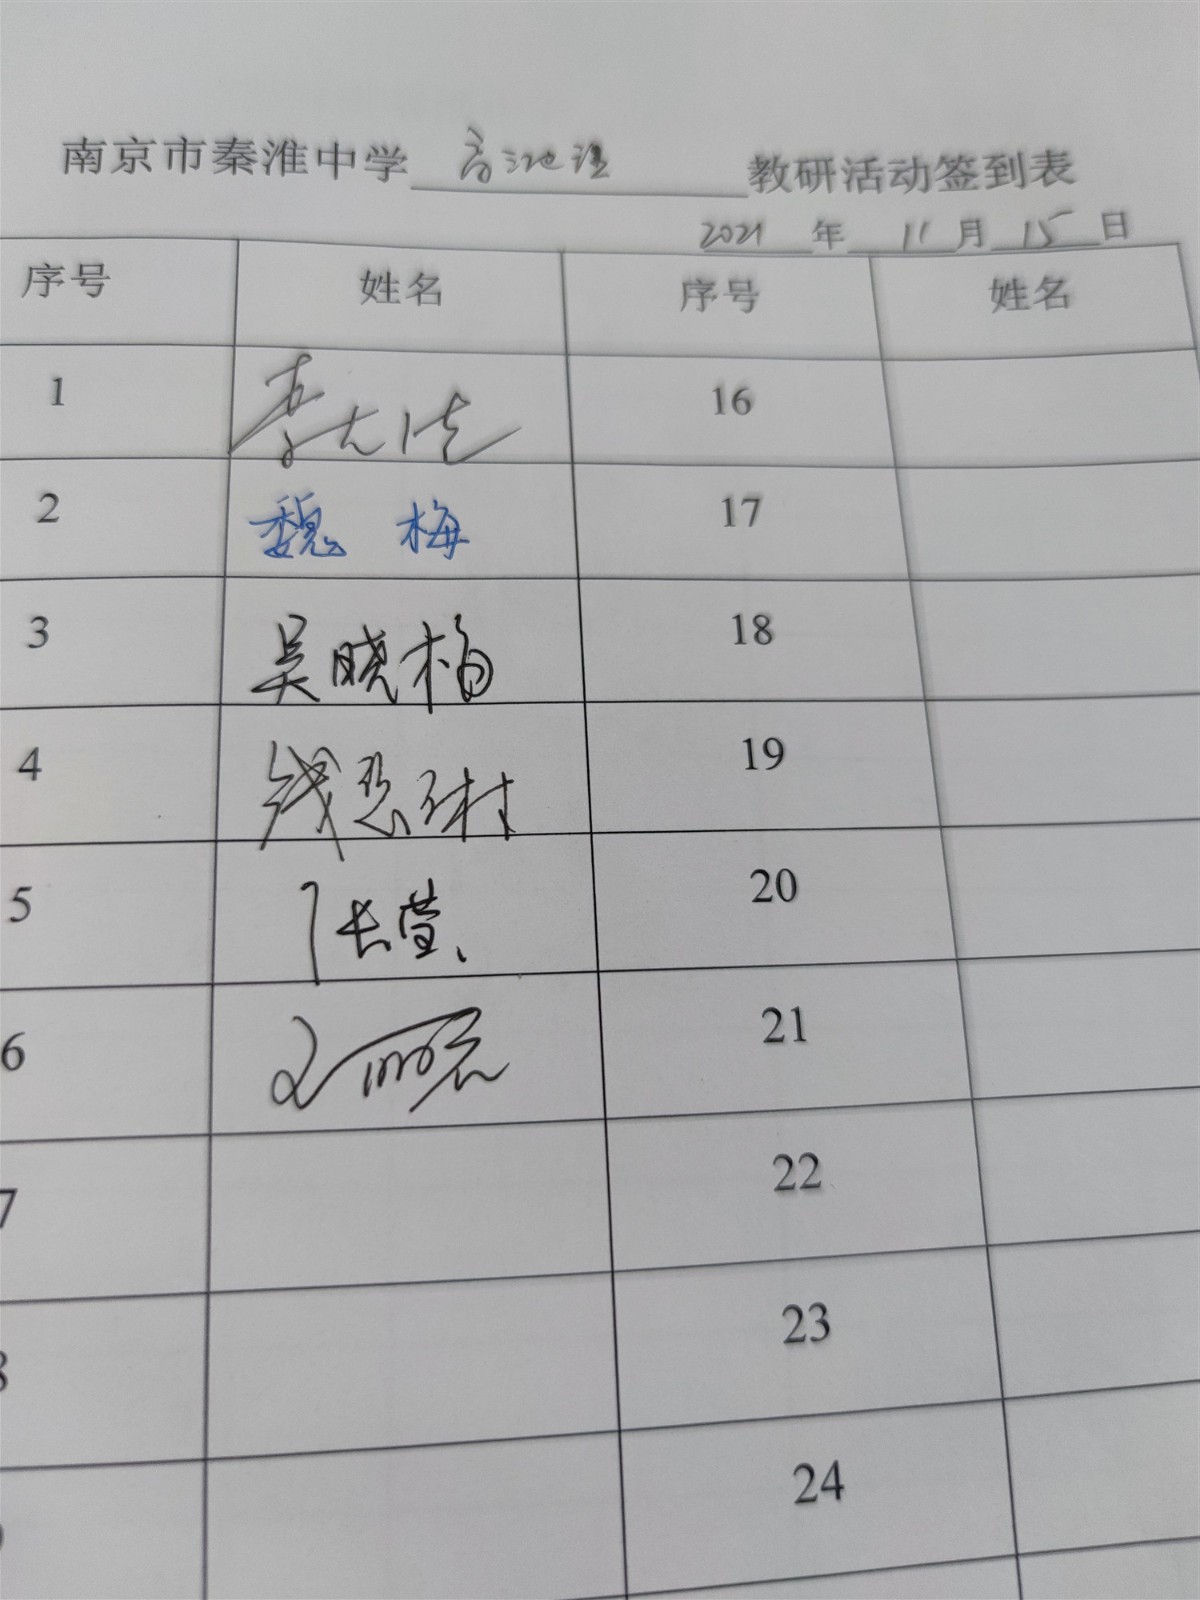 南京市秦淮中学 高地理 教研活动签到表
2021 年 11 月 15 日
序号 姓名 序号 姓名
1 16
2 魏 梅 17
3 吴晓梅 18
4 钱思琳 19
5 张莹 20
6 21
7 22
8 23
24